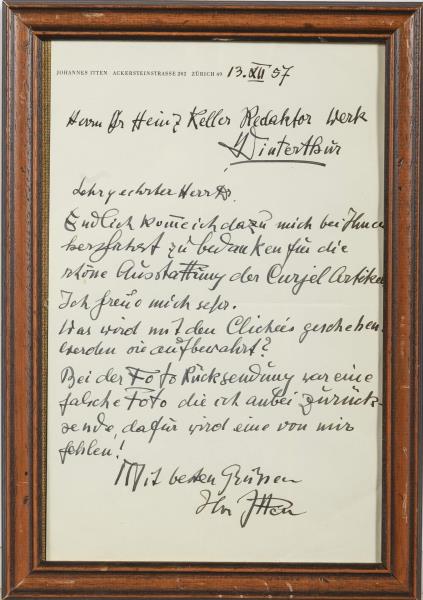 JOHANNES ITTEN ACKERSTEINSTRASSE 202 ZÜRICH 49 13. XII 57
Herrn Dr Heinz Keller Redaktor Werk
Winterthur
Sehr geehrter Herr Dr.
Endlich komme ich dazu mich bei Ihnen
herzlichst zu bedanken für die
schöne Ausstattung der Curjel Artikel
Ich freue mich sehr.
Was wird mit den Clichées geschehen.
werden sie aufbewahrt?
Bei der Foto Rücksendung war eine
falsche Foto die ich anbei zurück-
sende, dafür wird eine von mir
fehlen!
Mit besten Grüssen
Ihr Itten